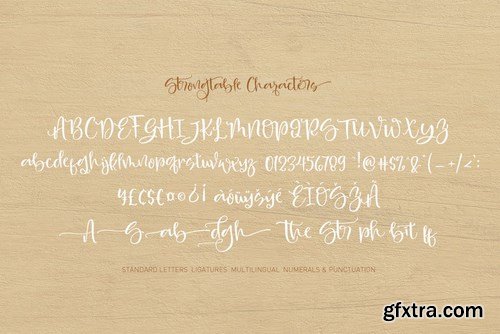 Strongtable Characters
ABCDEFGHIJKLMNOPQRSTUVWXYZ
abcdefghijklmnopqrstuvwxyz 0123456789 !@#$%&*(-+/<:
A S ab dgh The Str ph bit ff
STANDARD LETTERS LIGATURES MULTILINGUAL NUMERALS & PUNCTUATION
gfxtra.com